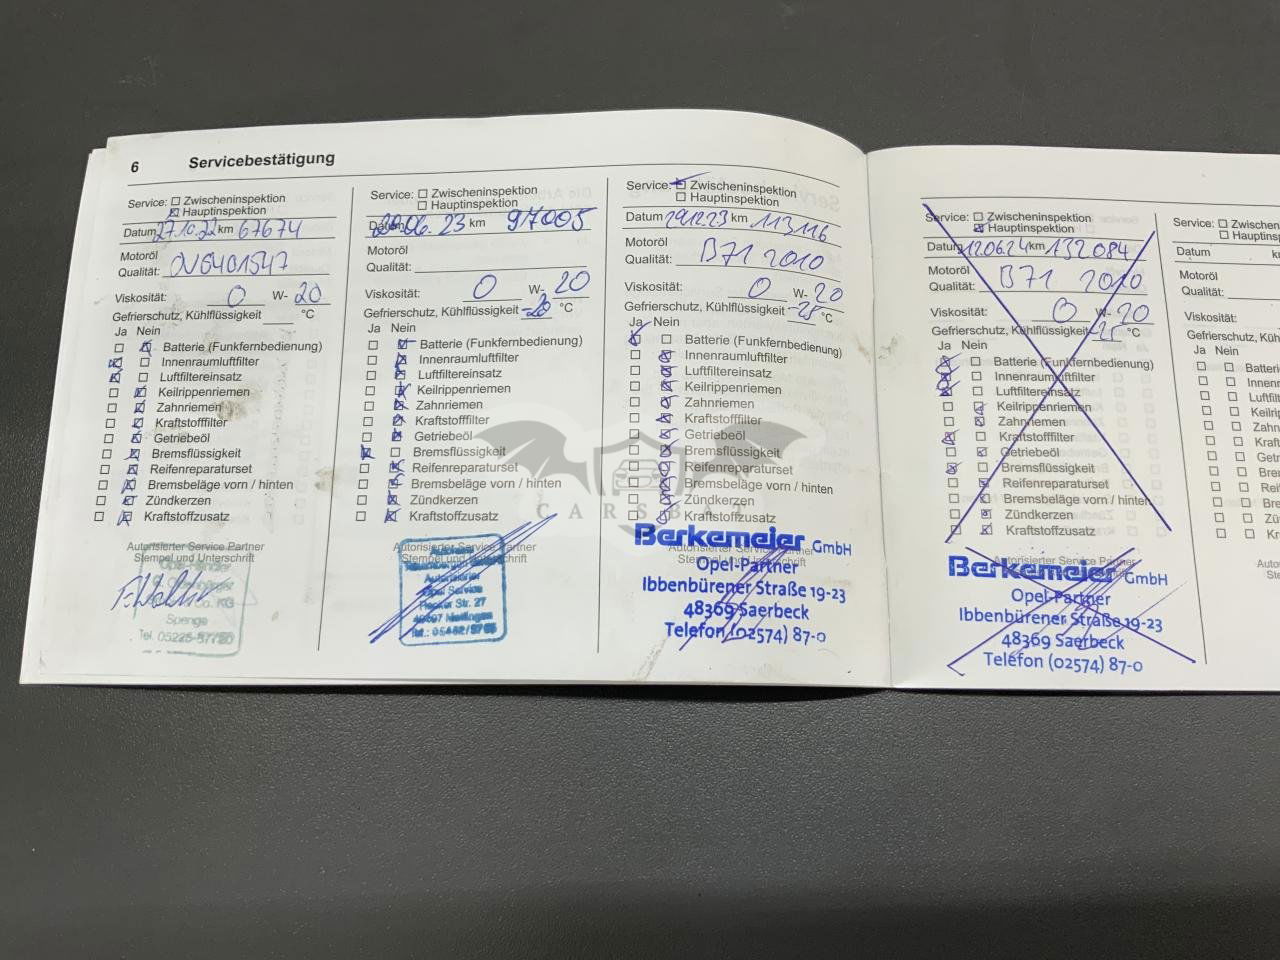 6 Servicebestätigung
Service: Zwischeninspektion
Hauptinspektion
Datum 27.10.22 km 67674
Motoröl
Qualität: OV0401547
Viskosität: 0 W- 20
Gefrierschutz, Kühlflüssigkeit °C
Ja Nein
Batterie (Funkfernbedienung)
Innenraumluftfilter
Luftfiltereinsatz
Keilrippenriemen
Zahnriemen
Kraftstofffilter
Getriebeöl
Bremsflüssigkeit
Reifenreparaturset
Bremsbeläge vorn / hinten
Zündkerzen
Kraftstoffzusatz
Autorisierter Service Partner
Stempel und Unterschrift
Co. KG
Spenge
Tel. 05225-
Service: Zwischeninspektion
Hauptinspektion
Datum 20.06.23 km 97005
Motoröl
Qualität:
Viskosität: 0 W- 20
Gefrierschutz, Kühlflüssigkeit -28 °C
Ja Nein
Batterie (Funkfernbedienung)
Innenraumluftfilter
Luftfiltereinsatz
Keilrippenriemen
Zahnriemen
Kraftstofffilter
Getriebeöl
Bremsflüssigkeit
Reifenreparaturset
Bremsbeläge vorn / hinten
Zündkerzen
Kraftstoffzusatz
Autorisierter Service Partner
Stempel und Unterschrift
Autorisierter
Opel Service
Str. 27
Mettingen
Service: Zwischeninspektion
Hauptinspektion
Datum 29.12.23 km 113116
Motoröl
Qualität: B71 2010
Viskosität: 0 W- 20
Gefrierschutz, Kühlflüssigkeit -25 °C
Ja Nein
Batterie (Funkfernbedienung)
Innenraumluftfilter
Luftfiltereinsatz
Keilrippenriemen
Zahnriemen
Kraftstofffilter
Getriebeöl
Bremsflüssigkeit
Reifenreparaturset
Bremsbeläge vorn / hinten
Zündkerzen
Kraftstoffzusatz
Autorisierter Service Partner
Stempel und Unterschrift
Berkemeier GmbH
Opel-Partner
Ibbenbürener Straße 19-23
48369 Saerbeck
Telefon (02574) 87-0
Service: Zwischeninspektion
Hauptinspektion
Datum 12.06.24 km 132084
Motoröl
Qualität: B71 2010
Viskosität: 0 W- 20
Gefrierschutz, Kühlflüssigkeit -25 °C
Ja Nein
Batterie (Funkfernbedienung)
Innenraumluftfilter
Luftfiltereinsatz
Keilrippenriemen
Zahnriemen
Kraftstofffilter
Getriebeöl
Bremsflüssigkeit
Reifenreparaturset
Bremsbeläge vorn / hinten
Zündkerzen
Kraftstoffzusatz
Autorisierter Service Partner
Berkemeier GmbH
Opel-Partner
Ibbenbürener Straße 19-23
48369 Saerbeck
Telefon (02574) 87-0
Service: Zwischen
Hauptins
Datum k
Motoröl
Qualität:
Viskosität:
Gefrierschutz, Kühlf
Ja Nein
Batteri
Innenr
Luftfilt
Keilrip
Zahn
Kraft
Getr
Bre
Rei
Bre
Zü
Kr
Auto
St
CARSBAT